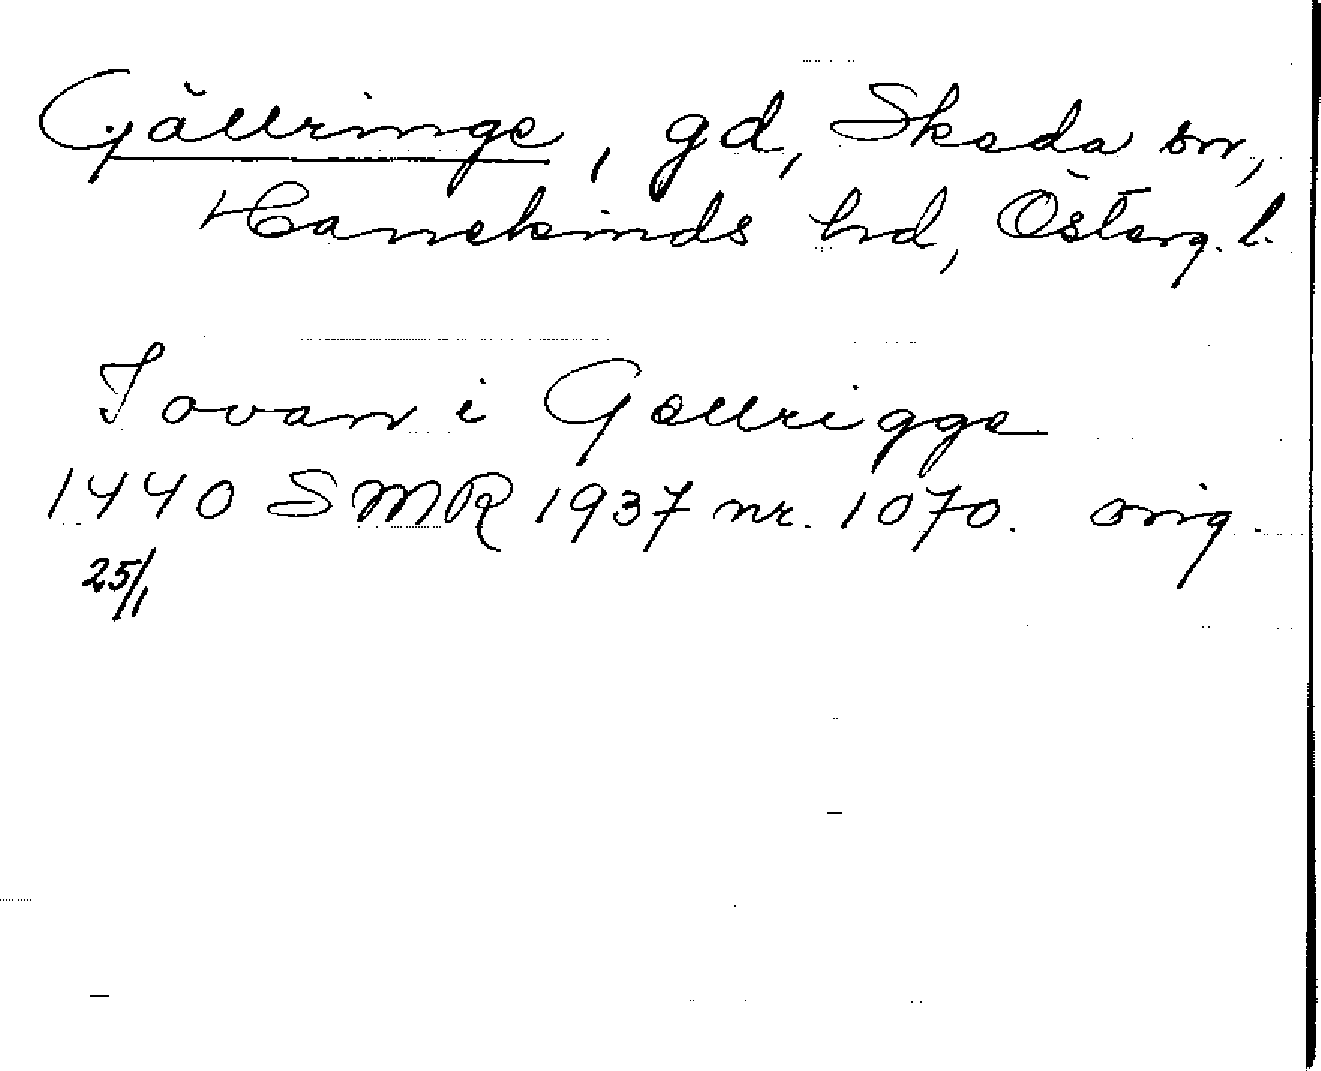 Gällringe, gd, Skeda sn,
Hanekinds hd, Österg. l.
Iovan i Gællrigge
1440 SMR 1937 nr. 1070. orig.
25/1